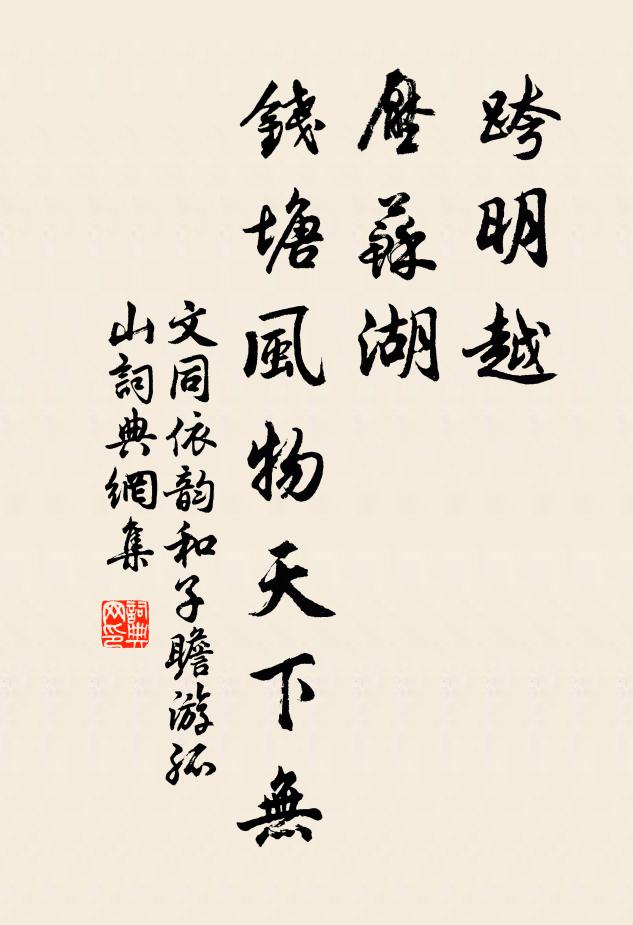 跨明越
壓蘇湖
錢塘風物天下無
文同依韵和子瞻游孤
山詞典網集
詞典
网印